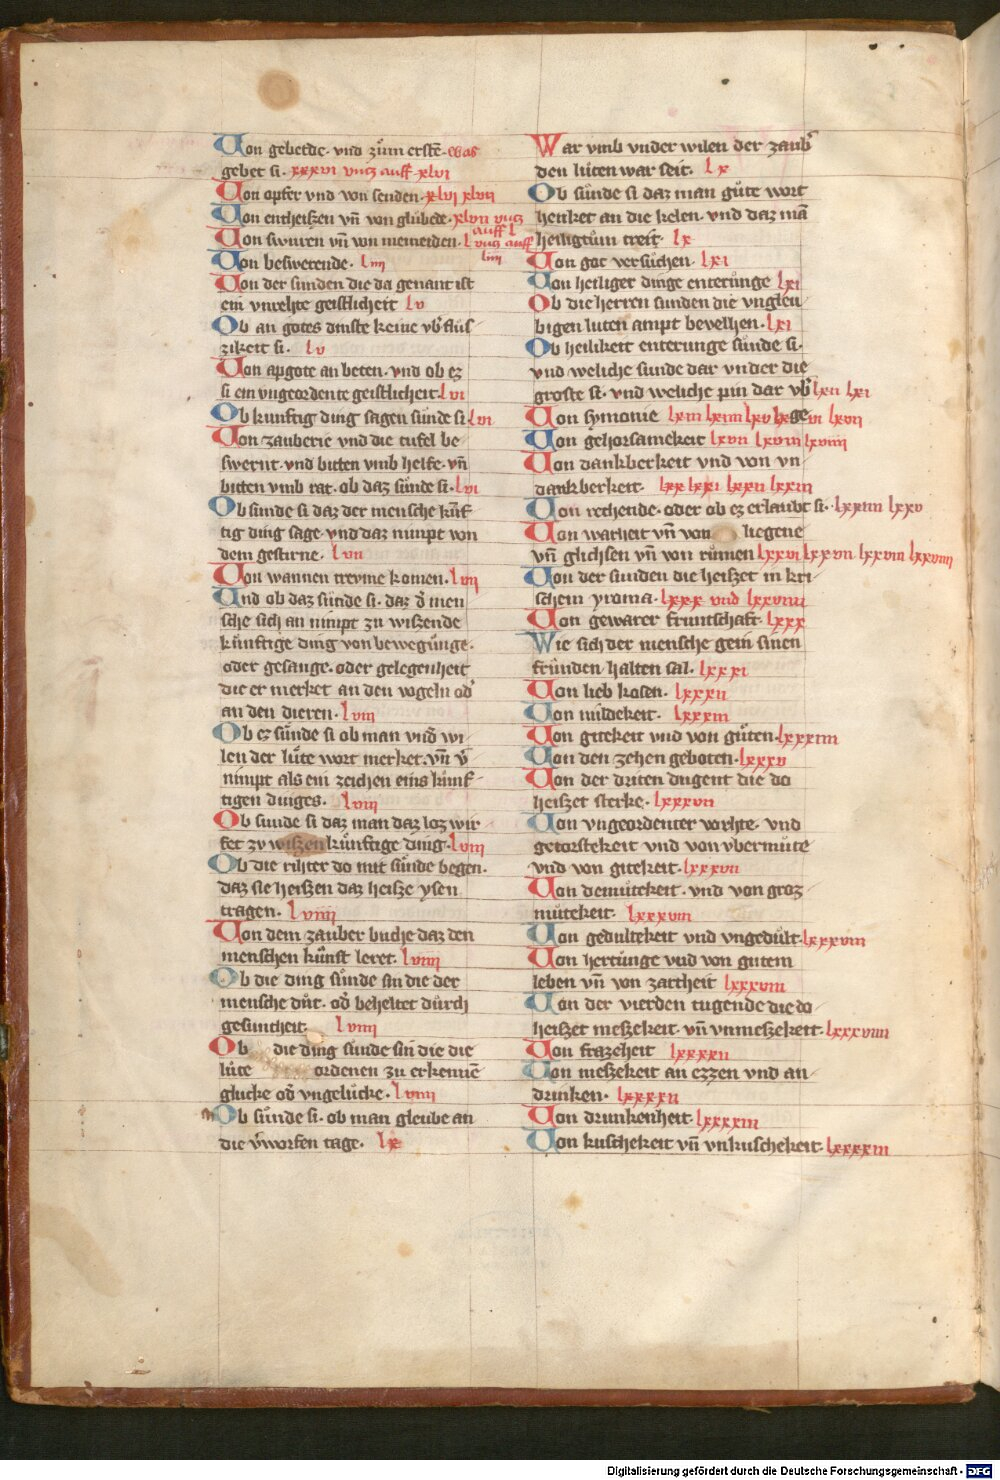 Von gebetde · vnd zům ersten · was
gebet si · xxxvi vntz auff xlvi
Von opfer vnd von senden · xlvi xlvii
Von entheiszen vn̄ von glubede · xlvii vntz
auff l
Von sweren vn̄ von meineiden · l vntz auff
liiii
Von beswerende · liiii
Von der sunden die da genant ist
ein vnrehte geistlicheit lv
Ob an gotes dinste keine vb̕flus
zikeit si · lv
Von apgote an beten · vnd ob ez
si ein vngeordente geistlicheit · lvi
Ob kunftig ding sagen sünde si lvi
Von zauberie vnd die tufel be
swernt · vnd bitten vmb helfe · vn̄
bitten vmb rat · ob daz sünde si · lvi
Ob sunde si daz der mensche kunf
tig ding sage · vnd daz nimpt von
dem gestirne · lvii
Von wannen treyme komen · lvii
Vnd ob daz sünde si · daz d̕ men
sche sich an nimpt zu wiszende
künftige ding von bewegünge ·
oder gesange · oder gelegenheit
die er merket an den vogeln od̕
an den dieren · lviii
Ob ez sünde si ob man vnd̕ wi
len der lüte wort merket · vn̄ v̕
nimpt als ein zeichen eins kunf
tigen dinges · lviii
Ob sunde si daz man daz loz wir
fet zv wiszen künftige ding · lviii
Ob die rihter do mit sünde begen ·
daz sie heiszen daz heisze ysen
tragen · lviiii
Von dem zauber buche daz den
menschen künst leret · lviiii
Ob die ding sünde sin die der
mensche düt · od̕ beheltet dürch
gesuntheit · lviiii
Ob die ding sunde sin die die
lüte ordenen zu erkennē
glucke od̕ vngelücke · lviiii
Ob sünde si · ob man gleube an
die v̕worfen tage · lx
War vmb vnder wilen der zaub̕
den lüten war seit · lx
Ob sünde si daz man güte wort
henket an die kelen · vnd daz mā
heiligtüm treit · lx
Von got versüchen · lxi
Von heiliger dinge enterünge lxi
Ob die herren sunden die vngleu
bigen luten ampt bevelhen · lxi
Ob heilikeit enterunge sünde si ·
vnd weliche sunde dar vnder die
groste si · vnd weliche pin dar vb̕ lxii lxi
Von symonie lxiii lxiiii lxv ge vi lxvii
Von gehorsamekeit lxvii lxviii lxviiii
Von dankberkeit vnd von vn
dankberkeit · lxx lxxi lxxii lxxiii
Von rechende · oder ob ez erlaubt si · lxxiiii lxxv
Von warheit vn̄ von liegene
vn̄ glichsen vn̄ von rümen lxxvi lxxvii lxxviii lxxviiii
Von der sunden die heiszet in kri
schem yroma · lxxx vnd lxxviiii
Von gewarer fruntschaft · lxxx
Wie sich der mensche gein sinen
fründen halten sal · lxxxi
Von lieb kosen · lxxxii
Von mildekeit · lxxxiii
Von gitekeit vnd von güten · lxxxiiii
Von den zehen geboten · lxxxv
Von der driten dugent die do
heiszet sterke · lxxxvii
Von vngeordenter vorhte · vnd
getorstekeit vnd von vbermüte
vnd von gitekeit · lxxxvii
Von demütekeit · vnd von groz
mütekeit · lxxxviii
Von gedultekeit vnd vngedült · lxxxviii
Von hertünge vnd von gutem
leben vn̄ von zartheit lxxxviii
Von der vierden tugende die do
heiszet meszekeit · vn̄ vnmeszekeit · lxxxviiii
Von frazeheit lxxxxii
Von meszekeit an ezzen vnd an
drinken · lxxxxii
Von drunkenheit · lxxxxiii
Von kuschekeit vn̄ vnkuschekeit · lxxxxiii
Digitalisierung gefördert durch die Deutsche Forschungsgemeinschaft - DFG